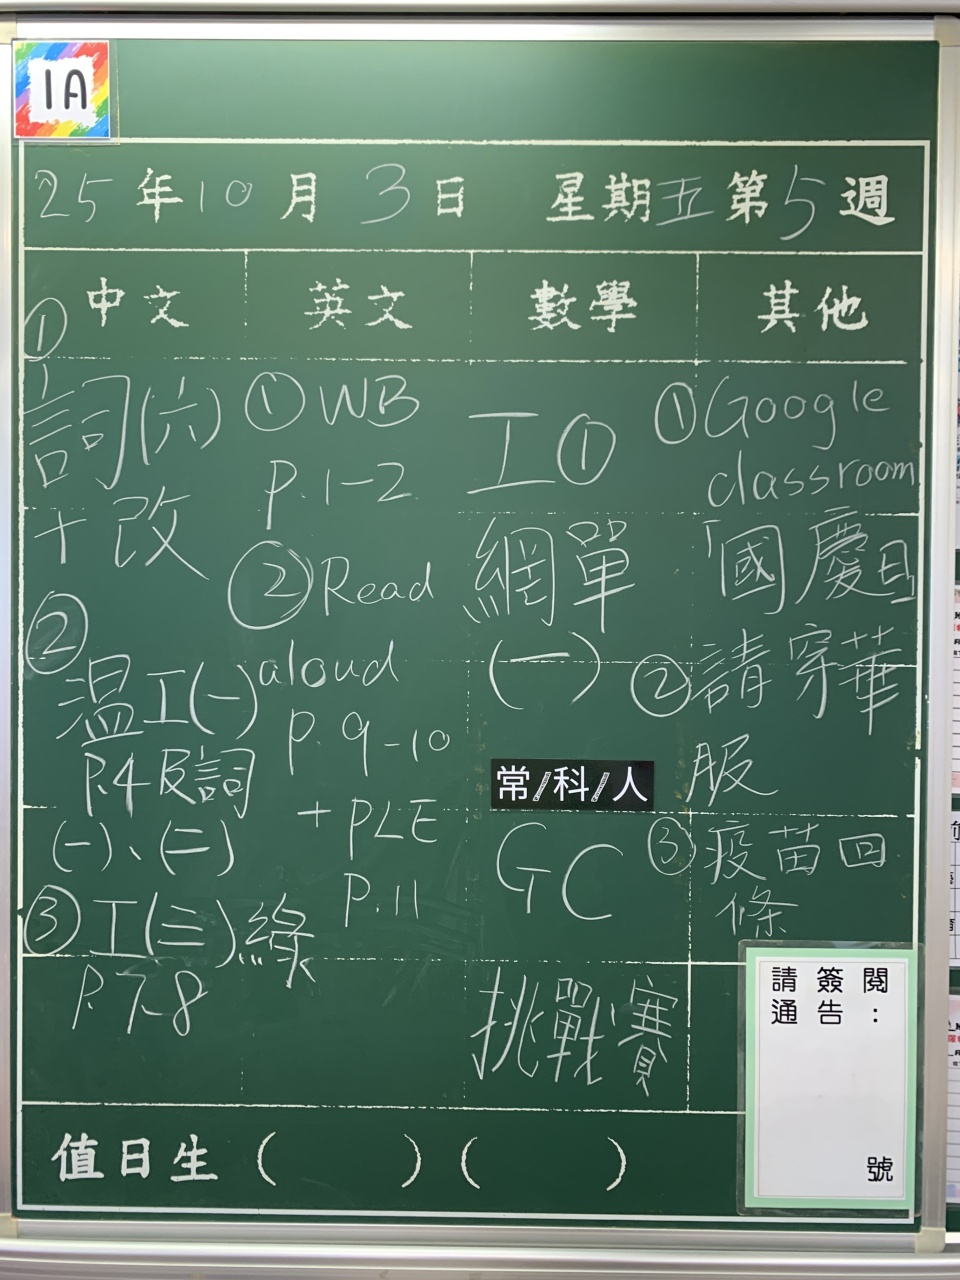 1A
25年10月3日 星期五第5週
中文 英文 數學 其他
①
詞(六)
+改
②
温工(一)
P.4 反詞
(一)、(二)
③工(三)
P.7-8
①WB
P.1-2
②Read
aloud
P.9-10
+PLE
P.11
工①
網單
(一)
常/科/人
GC
挑戰賽
①Google
classroom
「國慶日」
②請穿華
服
③疫苗回
條
請簽閱
通告:
號
值日生( )( )